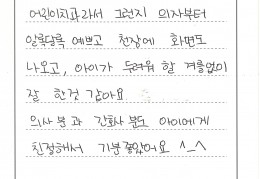 어린이치과라서 그런지 의자부터
알록달록 예쁘고 천장에 화면도
나오고, 아이가 두려워 할 겨를없이
잘 한것 같아요
의사 분과 간호사 분도 아이에게
친절해서 기분 좋았어요 ^_^